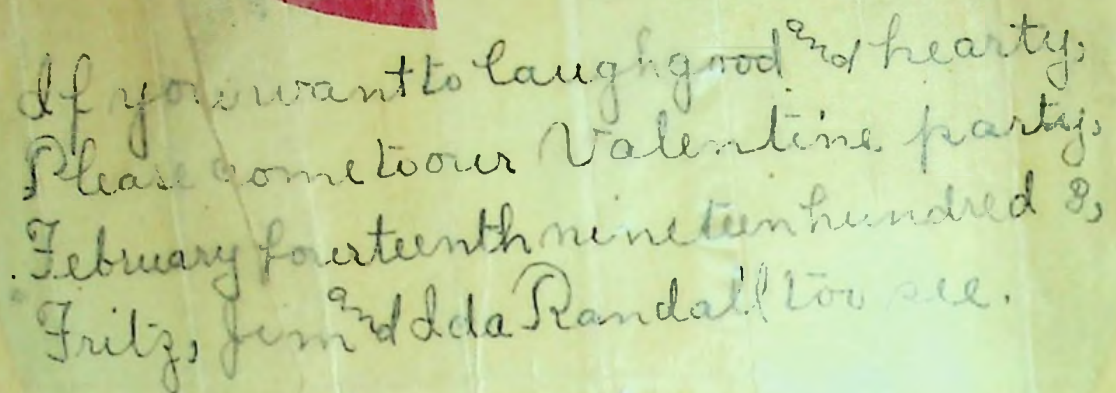 If you want to laugh good and hearty,
Please come to our Valentine party,
February fourteenth nineteen hundred 3,
Fritz, Jim and Ida Randall too see.